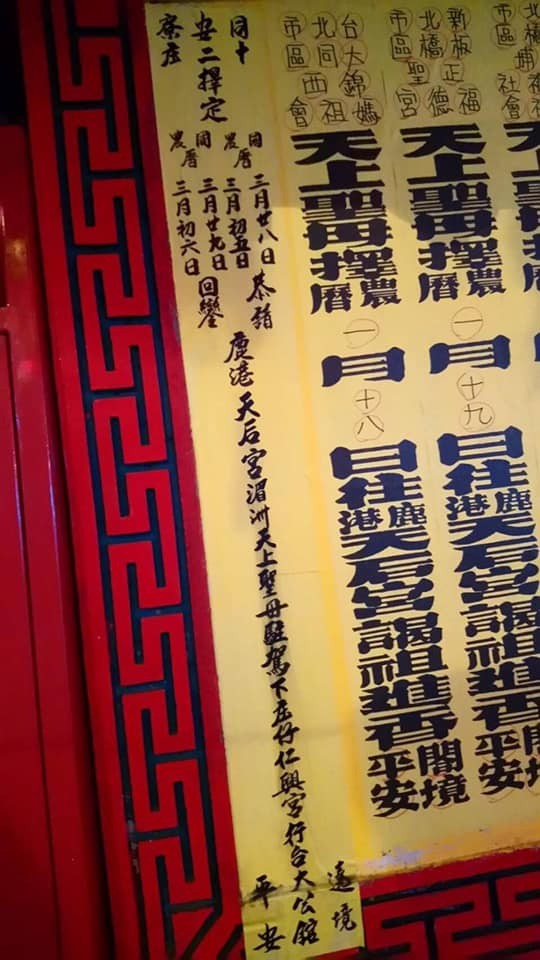 新北市板橋區正聖福德宮
天上聖母擇農曆一月十九日往鹿港天后宮謁祖進香闔境平安
台北市大同區錦西媽祖會
天上聖母擇農曆一月十八日往鹿港天后宮謁祖進香闔境平安
同安寮十二庄擇定
三月廿八日
農曆三月初五日恭請
三月廿九日
農曆三月初六日回鑾
鹿港天后宮湄洲天上聖母駐駕下庄仔仁興宮行台大公館遶境平安